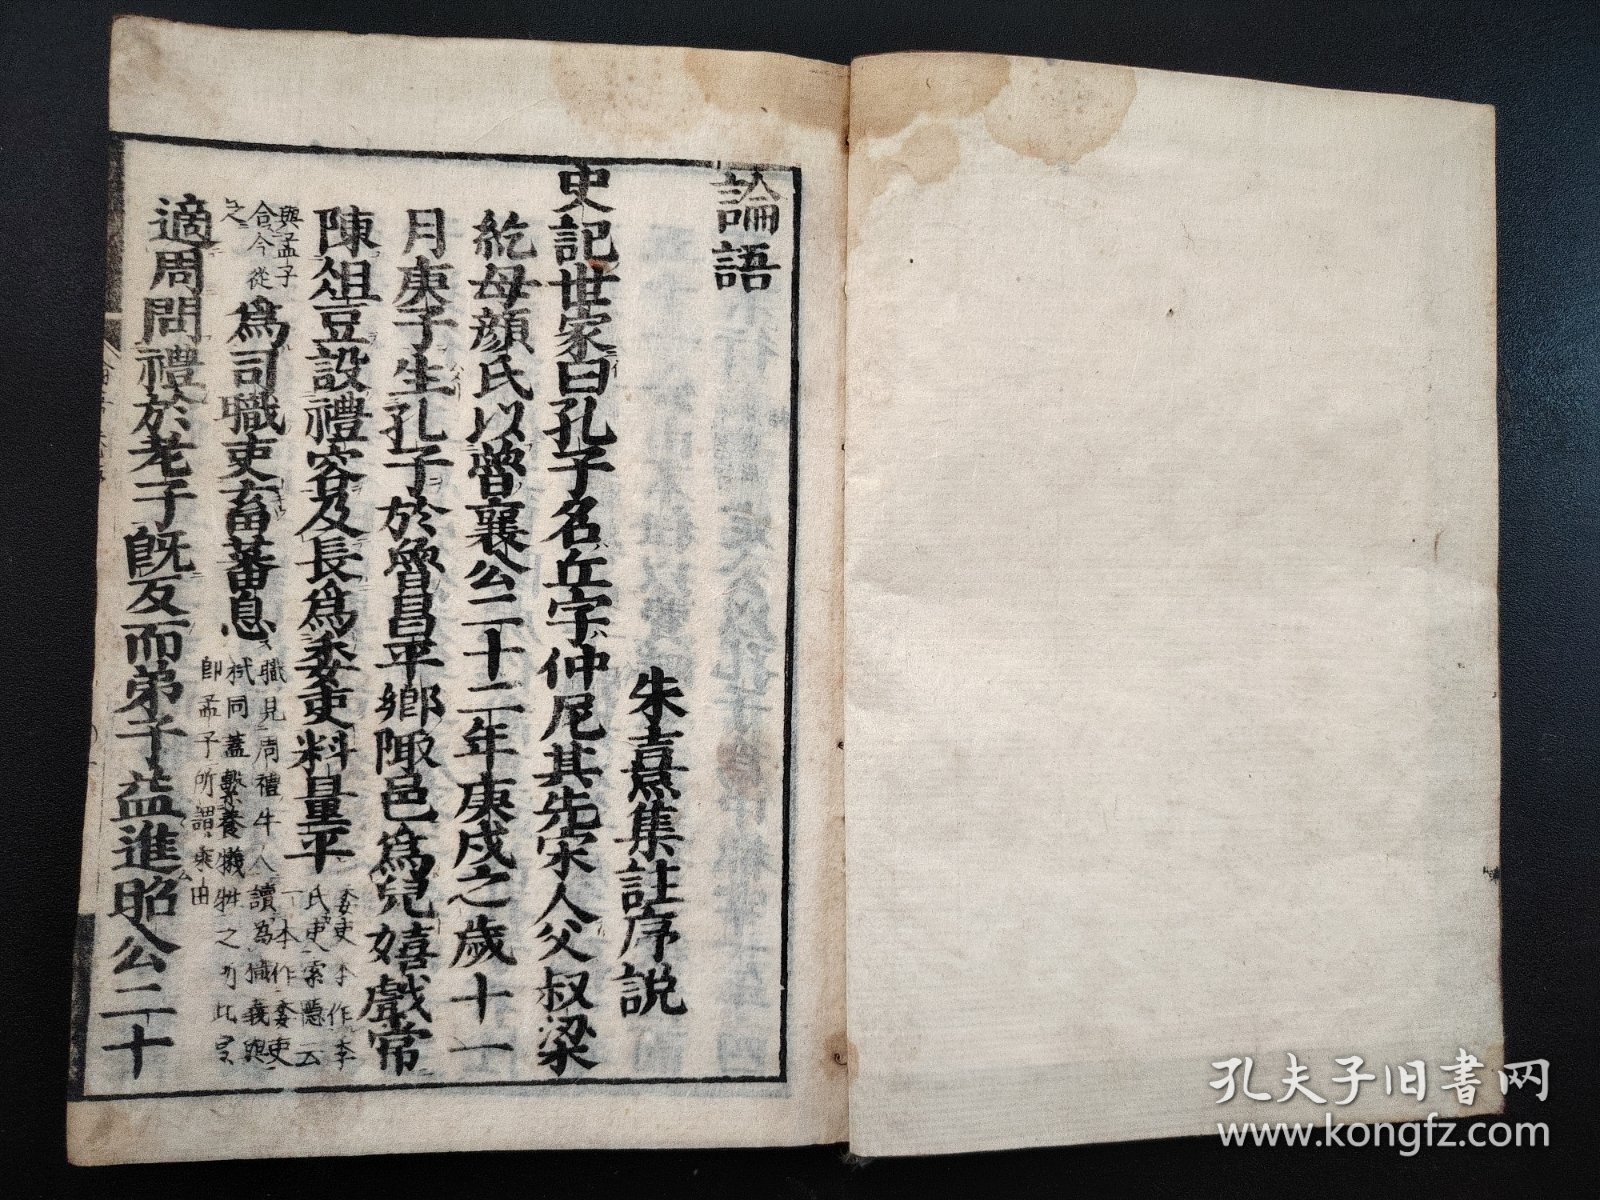 論語
朱熹集註序説
史記世家曰孔子名丘字仲尼其先宋人父叔梁
紇母顔氏以魯襄公二十二年庚戌之歲十一
月庚子生孔子於魯昌平郷陬邑爲兒嬉戲常
陳俎豆設禮容及長爲委吏料量平
委吏本作季
氏吏索隱云
一本作委吏
與孟子
合今從
之
爲司職吏畜蕃息
職見周禮牛人讀為樴義與
杙同蓋繋養犠牲之所此官
即孟子所謂乘田
適周問禮於老子既反而弟子益進昭公二十
孔夫子旧書网
www.kongfz.com